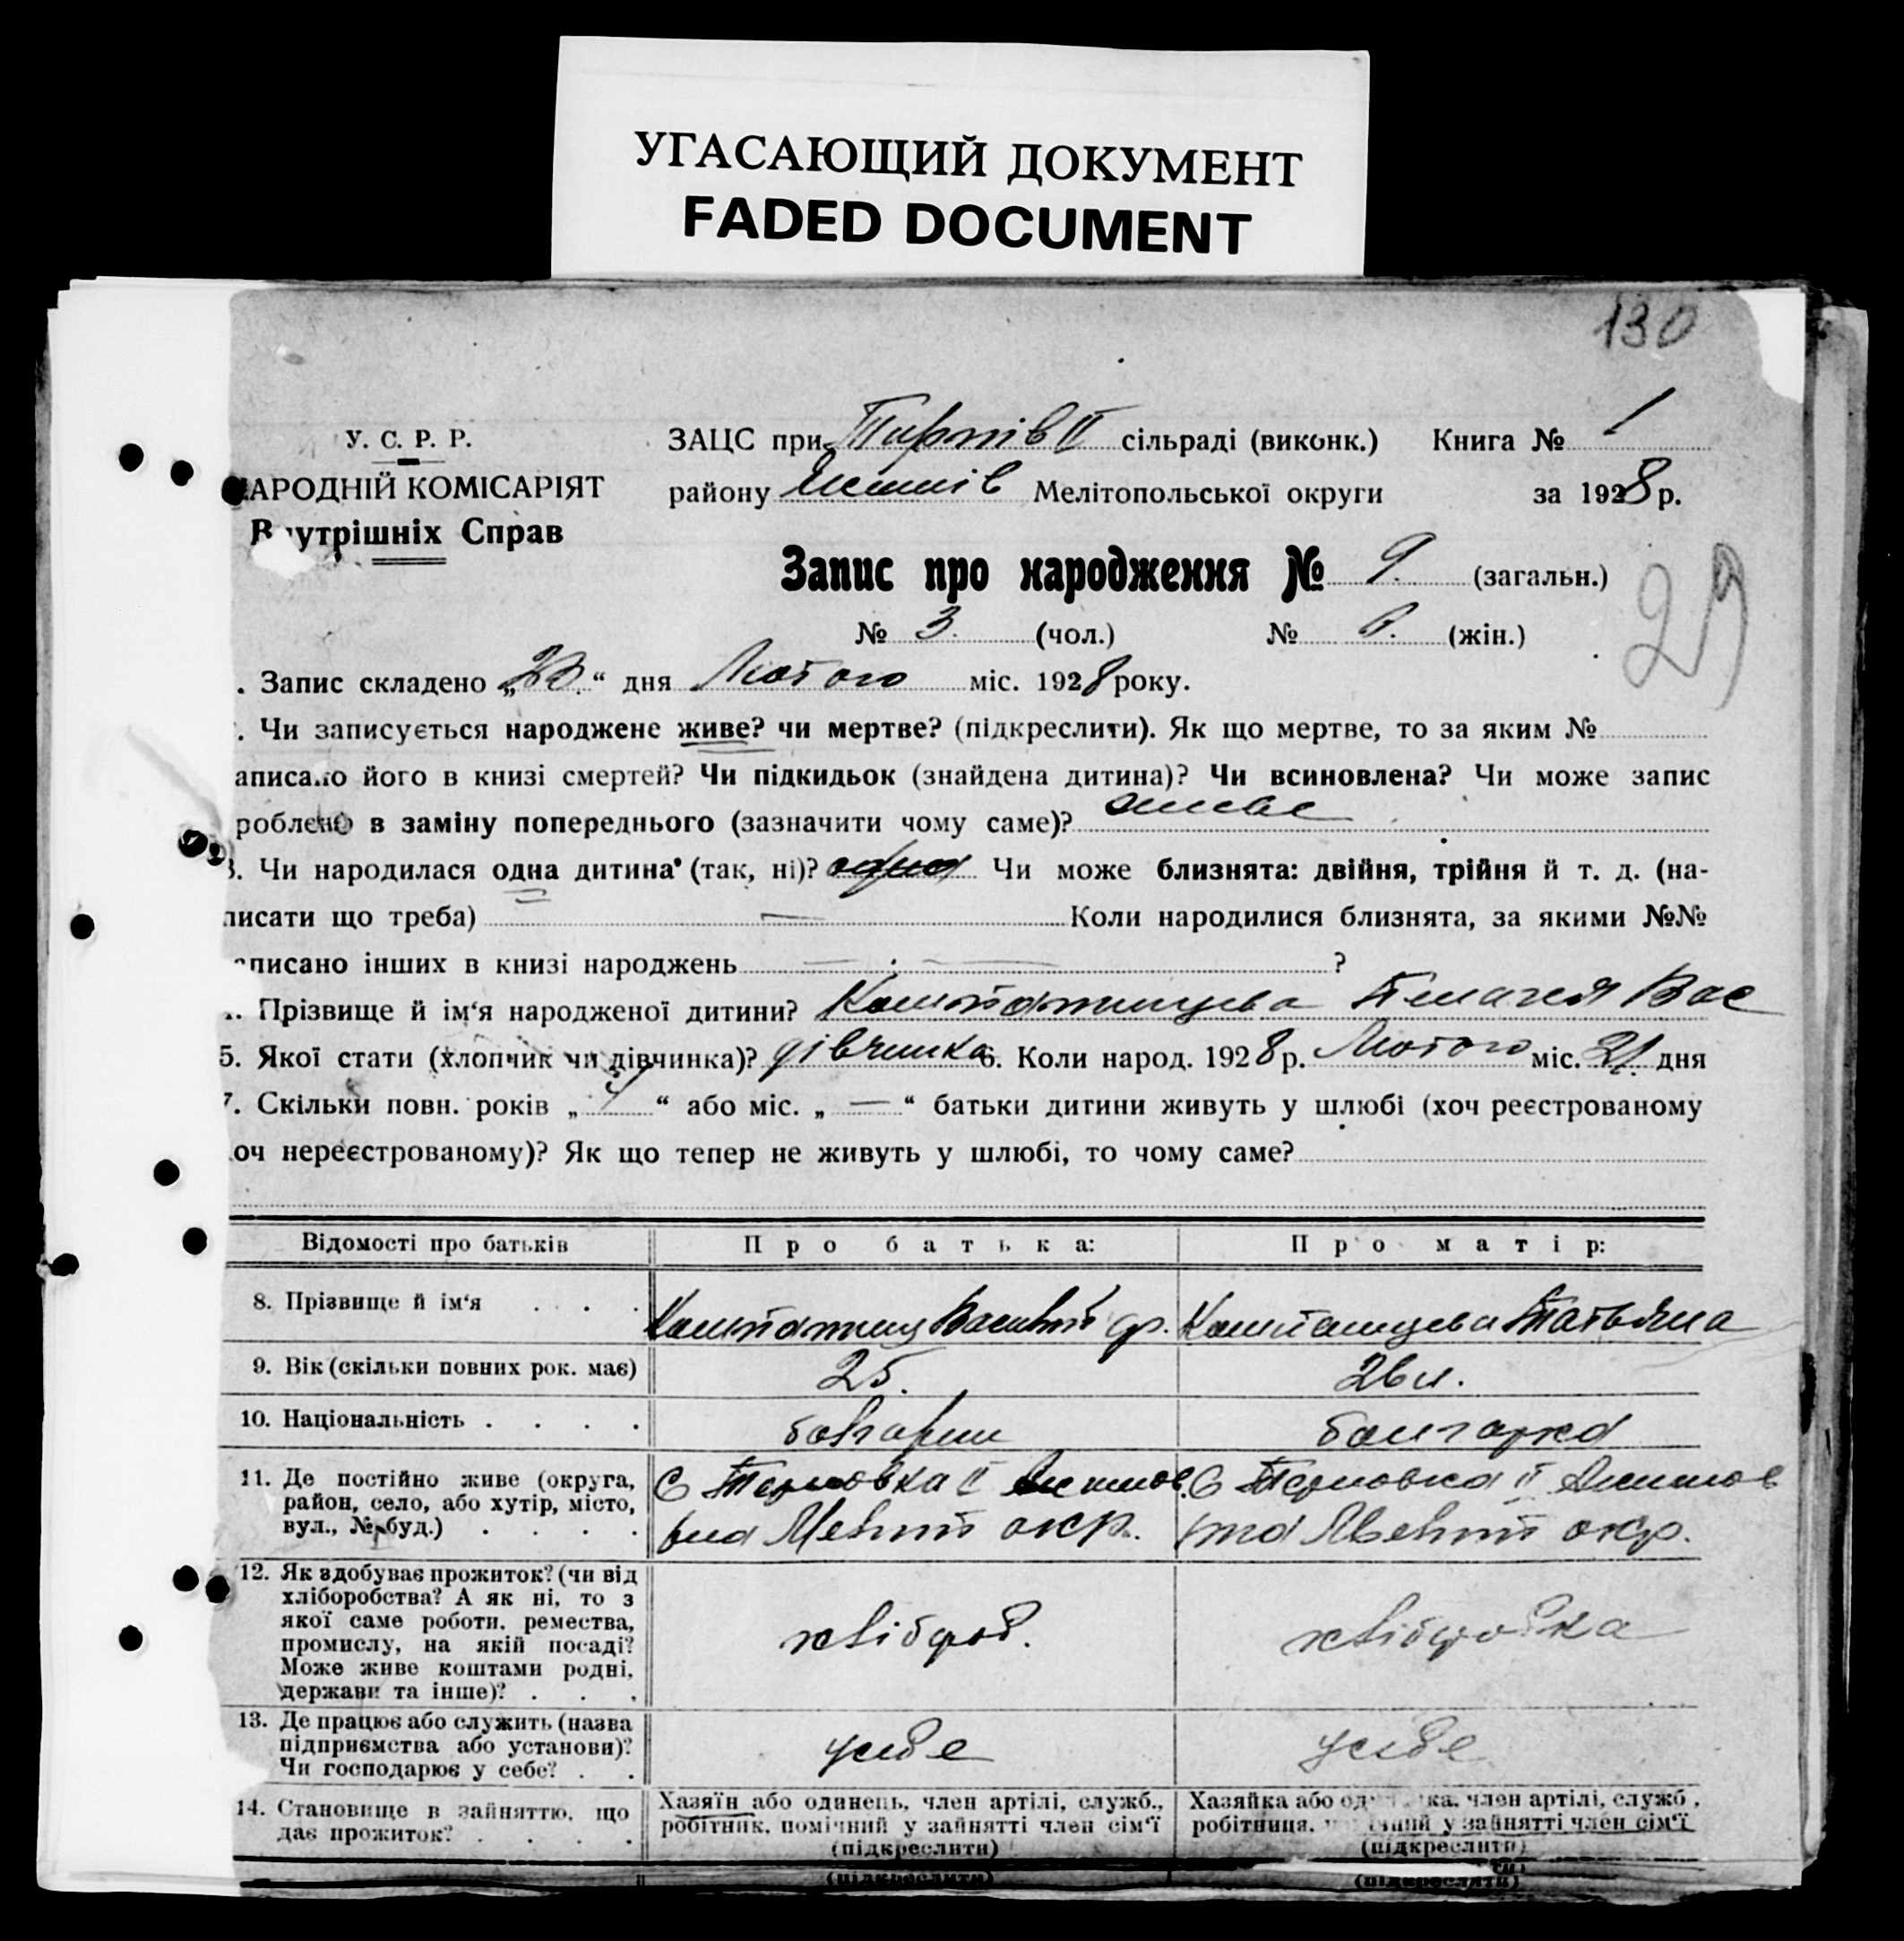 УГАСАЮЩИЙ ДОКУМЕНТ
FADED DOCUMENT
130
У. С. Р. Р.
АРОДНІЙ КОМІСАРІЯТ
Внутрішніх Справ
ЗАЦС при Тирнів II сільраді (виконк.) Книга № 1
району Якимів Мелітопольської округи за 1928 р.
Запис про народження № 9. (загальн.)
№ 3. (чол.) № 6. (жін.)
29
. Запис складено „23.“ дня Лютого міс. 1928 року.
. Чи записується народжене живе? чи мертве? (підкреслити). Як що мертве, то за яким №
аписано його в книзі смертей? Чи підкидьок (знайдена дитина)? Чи всиновлена? Чи може запис
роблено в заміну попереднього (зазначити чому саме)? живе
3. Чи народилася одна дитина (так, ні)? одна Чи може близнята: двійня, трійня й т. д. (на-
писати що треба) — Коли народилися близнята, за якими №№
аписано інших в книзі народжень — — ?
. Прізвище й ім‘я народженої дитини? Пелагея Вас
5. Якої стати (хлопчик чи дівчинка)? дівчинка 6. Коли народ. 1928 р. Лютого міс. 21. дня
7. Скільки повн. років „4“ або міс. „—“ батьки дитини живуть у шлюбі (хоч реєстрованому
хоч нереєстрованому)? Як що тепер не живуть у шлюбі, то чому саме?
Відомості про батьків Про батька: Про матір:
8. Прізвище й ім‘я . . . Василий Татьяна
9. Вік (скільки повних рок. має) 25. 26 л.
10. Національність . . . . болгарин болгарка
11. Де постійно живе (округа,
район, село, або хутір, місто,
вул., № буд.) . . . .
С Терновка II Якимов.
рна Меліт окр.
С Терновка II Якимов
рна Меліт окр.
12. Як здобуває прожиток? (чи від
хліборобства? А як ні, то з
якої саме роботи, ремества,
промислу, на якій посаді?
Може живе коштами родні,
держави та інше)? . . .
хлібороб.
хлібробка
13. Де працює або служить (назва
підприємства або установи)?
Чи господарює у себе? . .
у себе
у себе
14. Становище в зайняттю, що
дає прожиток? . . . .
Хазяїн або одинець, член артілі, служб.,
робітник, помічний у зайнятті член сім‘ї
(підкреслити)
Хазяйка або од ка, член артілі, служб.,
робітниця, у зайнятті член сім‘ї
(підкреслити)
(підкреслити) (підкреслити)